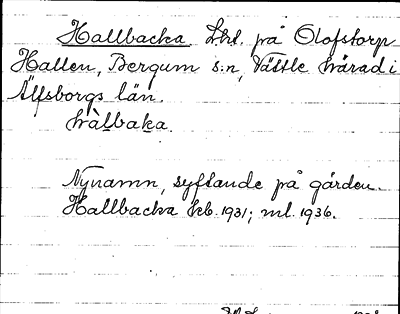 Hallbacka. Lht. på Olofstorp
Hallen, Bergum s:n, Vättle härad i
Älfsborgs län.
hàlbaka.
Nynamn, syftande på gården.
Hallbacka kb. 1931; ml. 1936.